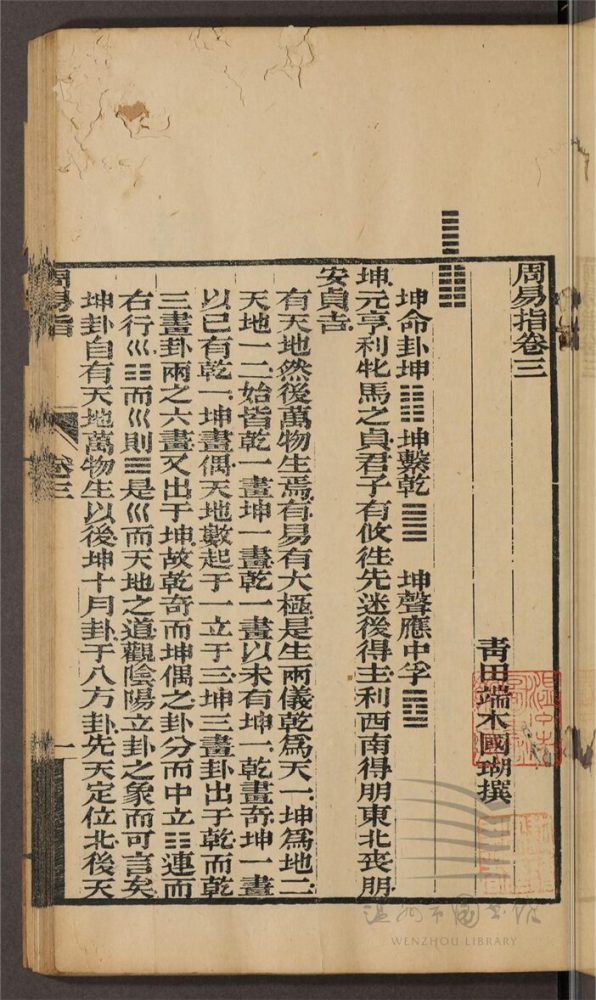 周易指卷三
青田端木國瑚撰
䷁
坤命卦坤䷁坤繫乾䷀ 坤聲應中孚䷼
坤元亨利牝馬之貞君子有攸往先迷後得主利西南得朋東北喪朋
安貞吉
有天地然後萬物生焉有易有大極是生兩儀乾爲天一坤爲地二
天地一二始皆乾一畫坤一畫乾一畫以未有坤一乾畫奇坤一畫
以已有乾一坤畫偶天地數起于一立于三坤三畫卦出于乾而乾
三畫卦兩之六畫又出于坤故乾奇而坤偶之卦分而中立☷連而
右行巛☷而巛則☰是巛而天地之道觀陰陽立卦之象而可言矣
坤卦自有天地萬物生以後坤十月卦于八方卦先天定位北後天
周易指
卷三
一
温州市圖書館
WENZHOU LIBRARY